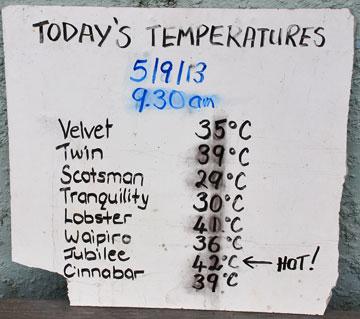 TODAY'S TEMPERATURES
5/9/13
9.30am
Velvet 35°C
Twin 39°C
Scotsman 29°C
Tranquility 30°C
Lobster 41°C
Waipiro 36°C
Jubilee 42°C ← HOT!
Cinnabar 39°C